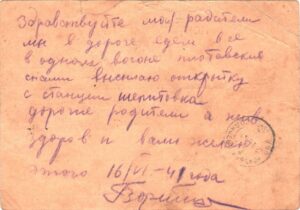 Здравствуйте мои радители
мы в дороге едем все
в одном вогоне плотавские
с нами высылаю открытку
с станции шепитовка
дорогие радители а я жив
здоров и вам желаю
этого 16/VI-41 года